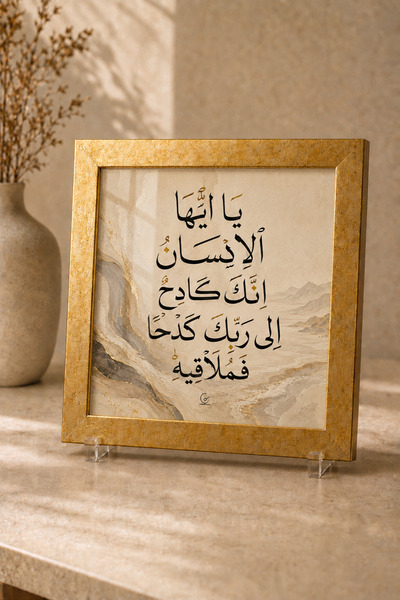 يَا ايُّهَا
الاِنِسَانُ
اِنَّكَ كَادِحٌ
اِلى رَبِّكَ كَدْحًا
فَمُلَاقِيهِ